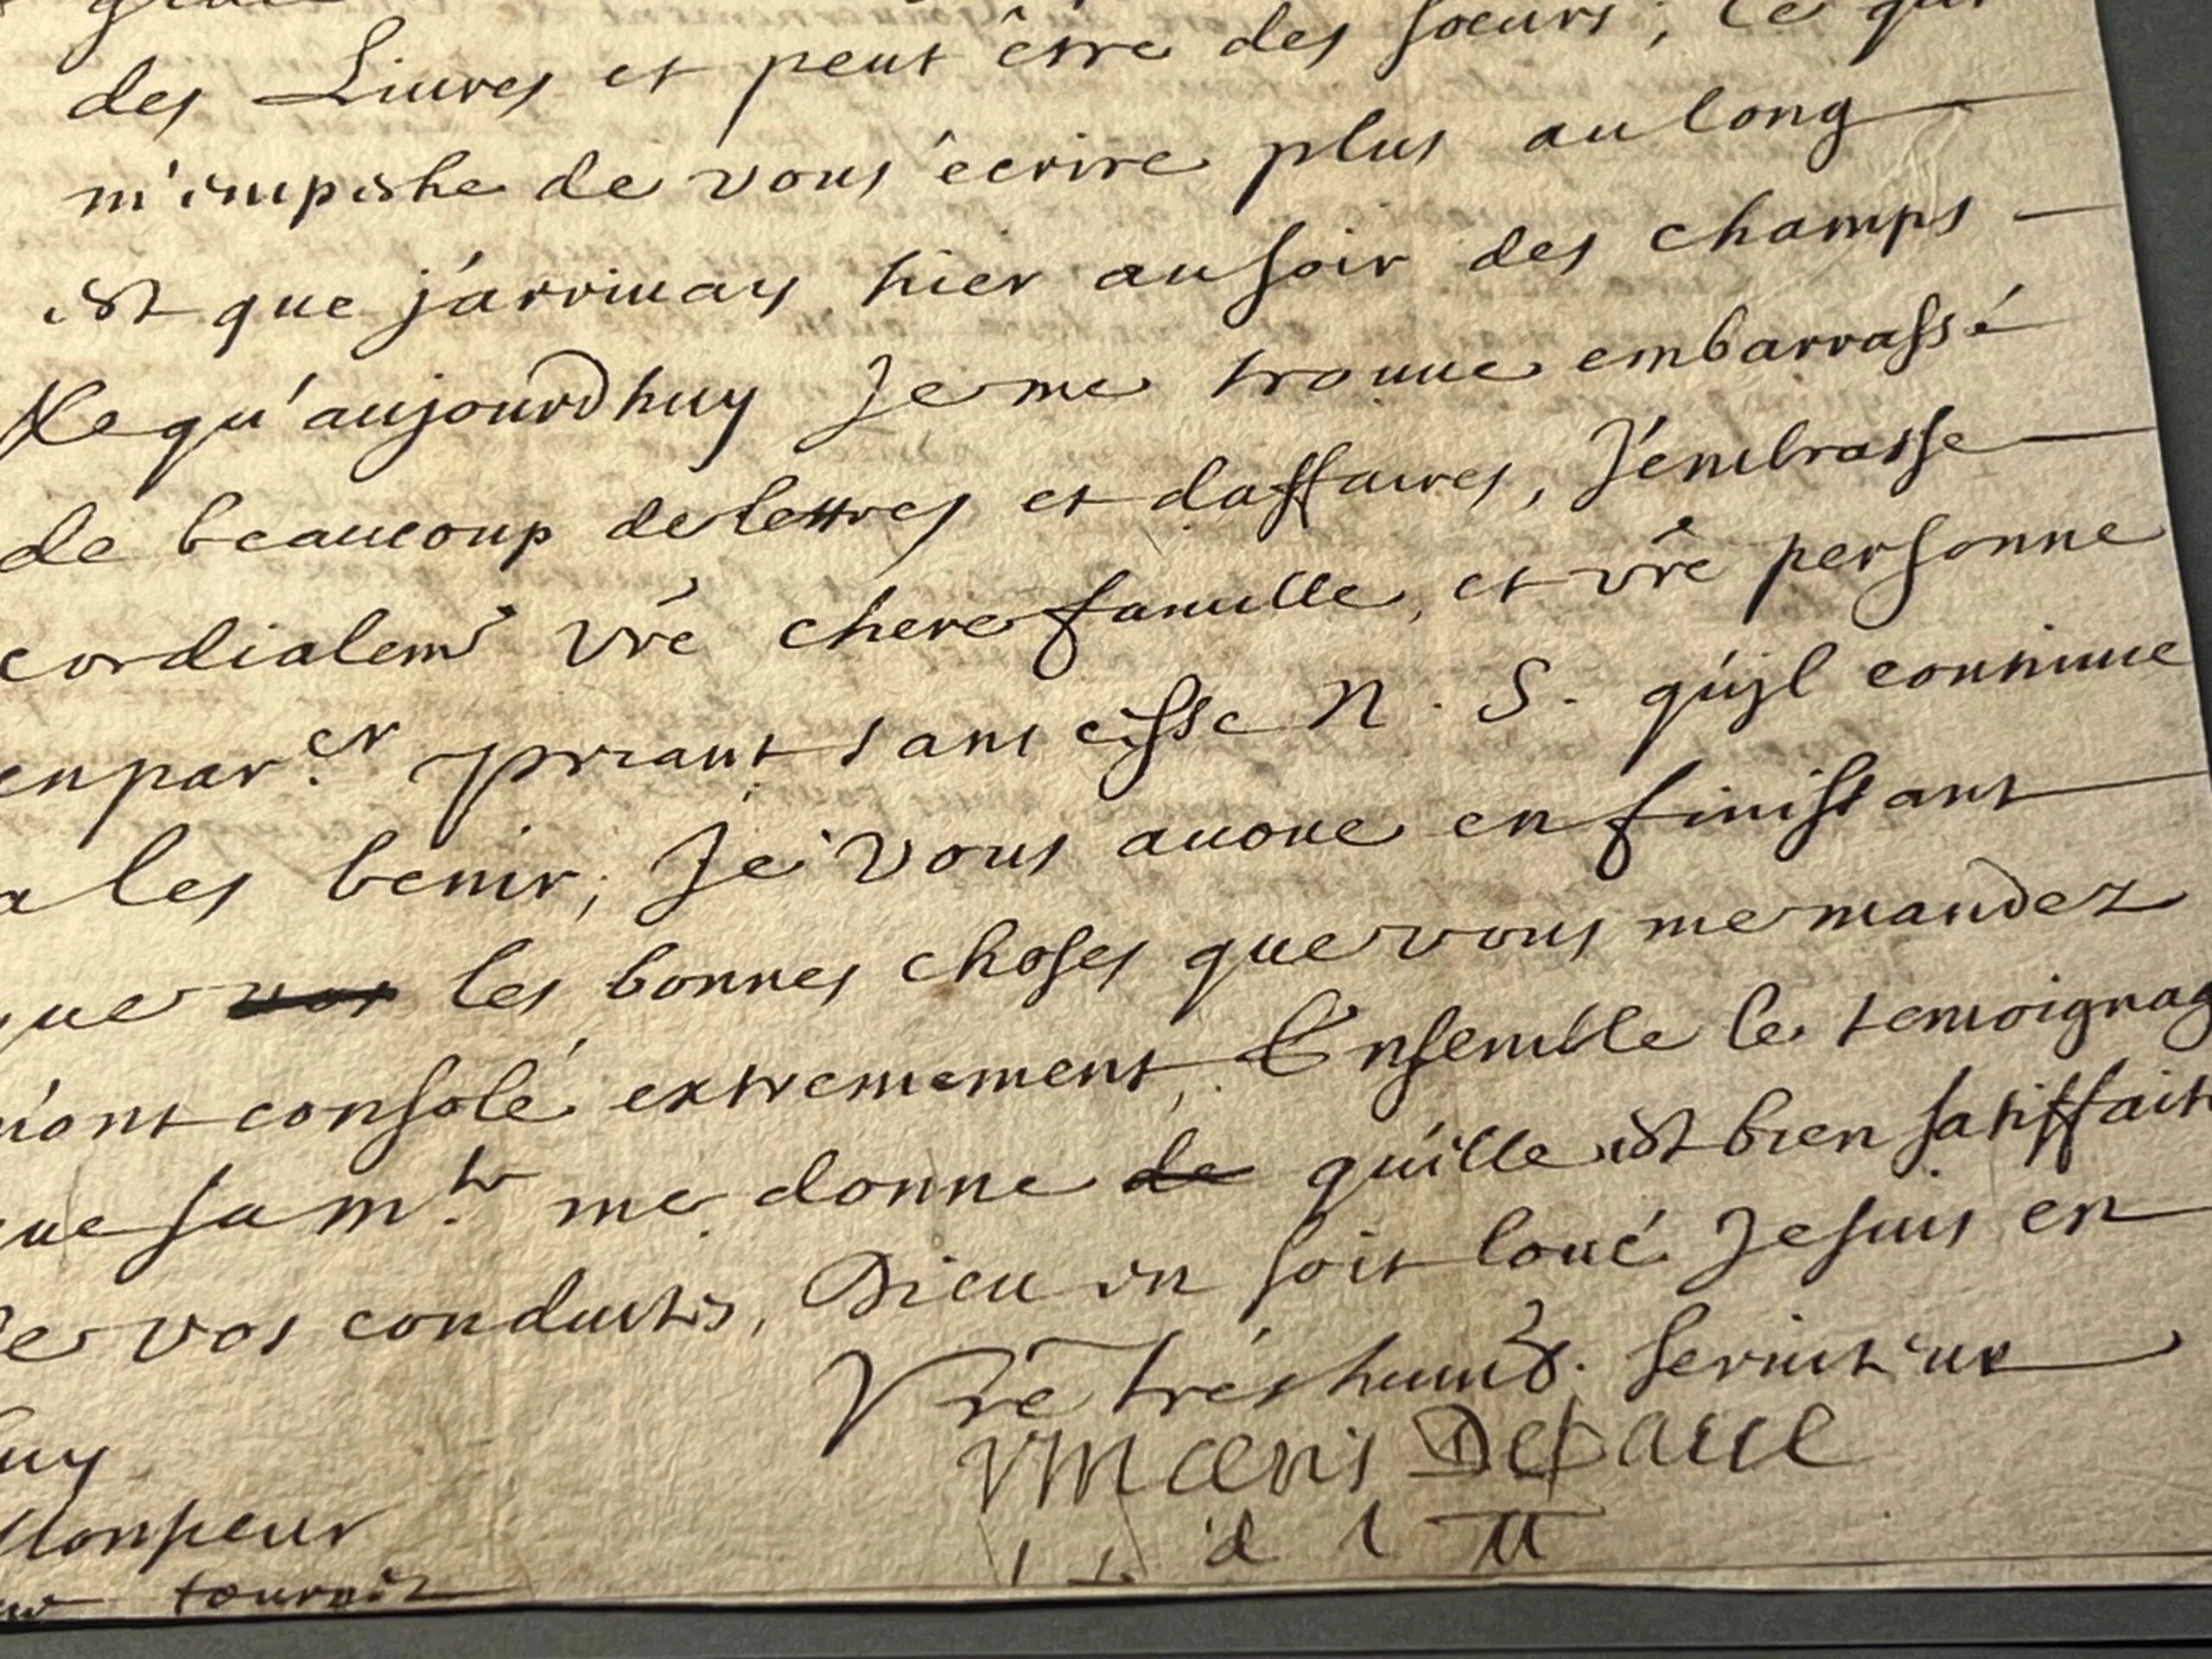 des Liures et peut être des soeurs; ce qui
m'empeshe de vous écrire plus au long
est que j'arriuay hier au soir des champs
&c qu'aujourdhuy Je me trouue embarassé
de beaucoup de lettres et daffaires, J'embrasse
cordialemt vre chere famille, et vre personne
en par.er priant sans cesse N. S. qu'jl continue
a les benir; Je vous auoue en finissant
que vos les bonnes choses que vous me mandez
m'ont consolé extremement, Ensemble le temoignag
que sa m.te me donne de qu'elle est bien satisfaite
de vos conduites, Dieu en soit loué Je suis en
Vre trés humb. seruiteur
Vincens Depaul
i. s. d l M
tournez